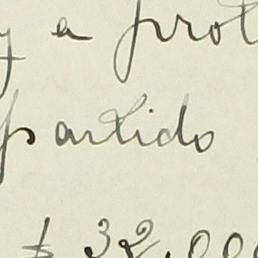 y a prot
partido
$ 32.000